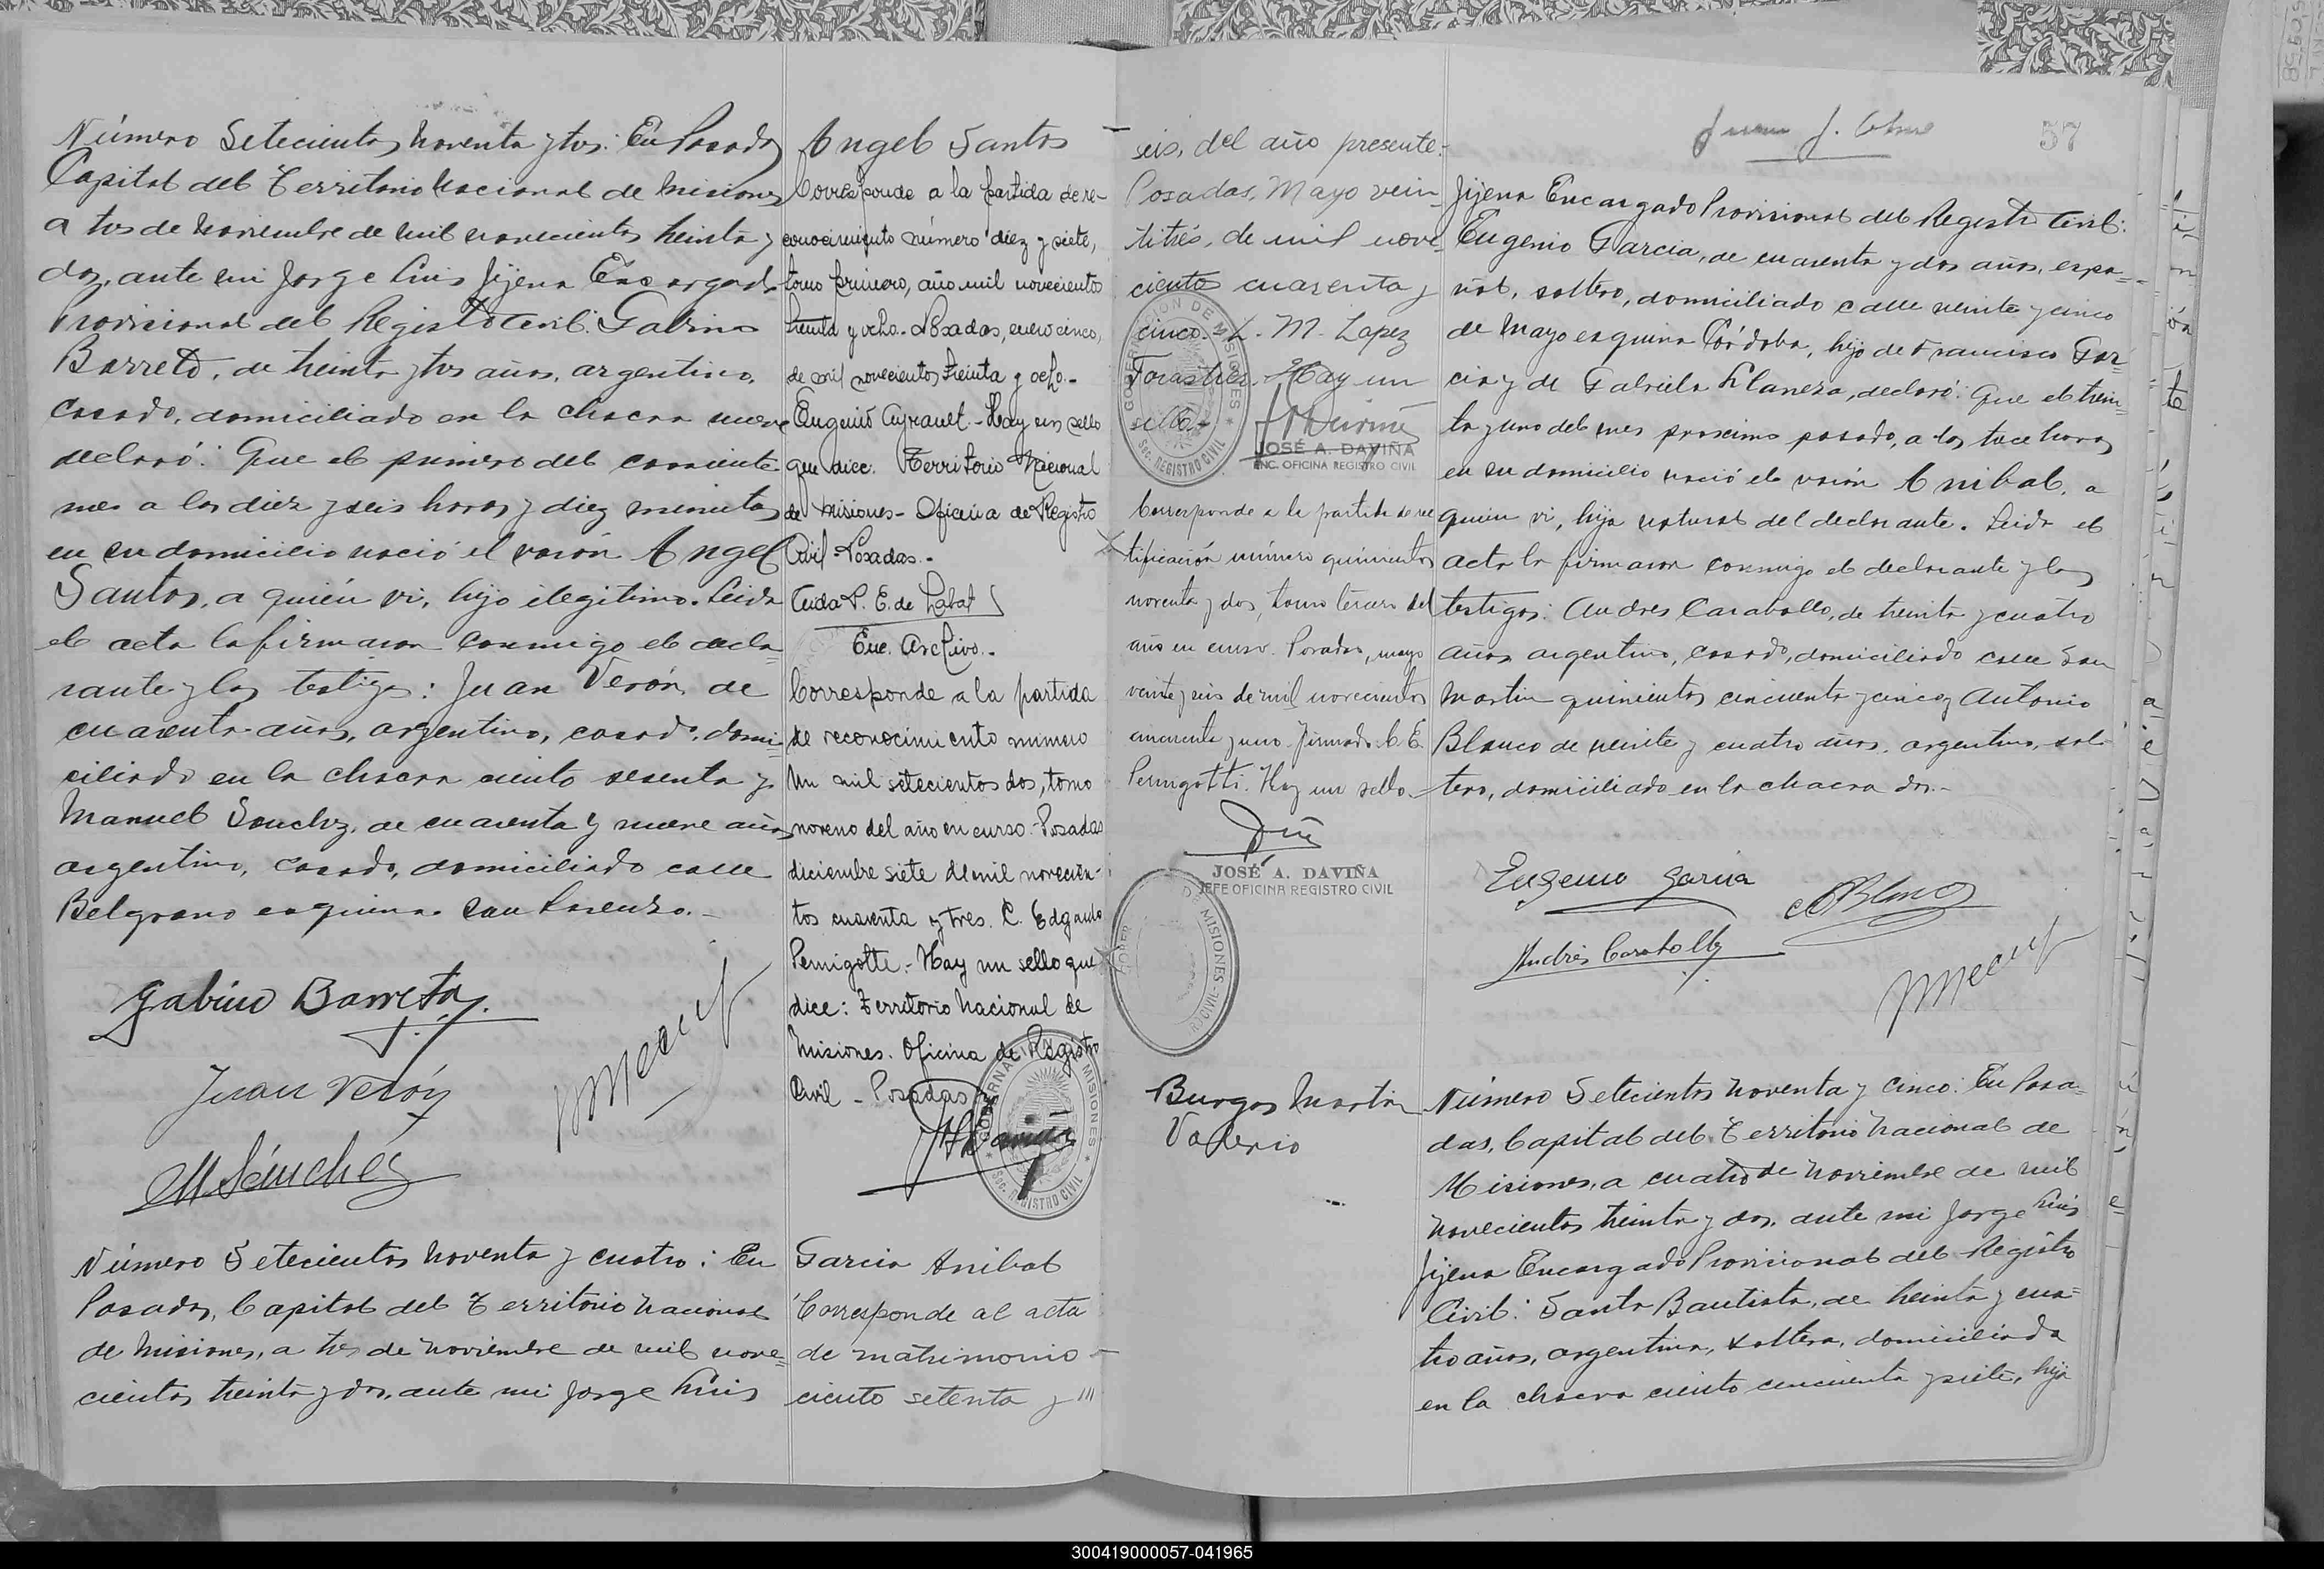 Número Setecientos noventa y tres: En Posadas
Capital del Territorio Nacional de Misiones
a tres de Noviembre de mil novecientos treinta y
dos, ante mi Jorge Luis Jijena Encargado
Provisional del Registro Civil: Gabino
Barreto, de treinta y tres años, argentino,
casado, domiciliado en la chacra nueve
declaró: Que el primero del corriente
mes a las diez y seis horas y diez minutos
en su domicilio nació el varón Angel
Santos, a quién vi, hijo ilegitimo. Leida
el acta la firmaron conmigo el decla-
rante y los testigos: Juan Verón, de
cuarenta años, argentino, casado, domi-
ciliado en la chacra ciento sesenta y
Manuel Sanchez, de cuarenta y nueve años
argentino, casado, domiciliado calle
Belgrano esquina San Lorenzo.-
Gabino Barreto
Juan Verón
M Sánchez
Número Setecientos noventa y cuatro: En
Posadas, Capital del Territorio Nacional
de Misiones, a tres de Noviembre de mil nove=
cientos treinta y dos, ante mi Jorge Luis
Angel Santos
Corresponde a la partida de re-
conocimiento número diez y siete,
tomo primero, año mil novecientos
treinta y ocho.- Posadas, enero cinco,
de mil novecientos treinta y ocho.-
Eugenio Ayrault.- Hay un sello
que dice: Territorio Nacional
de Misiones- Oficina de Registro
Civil-Posadas.-
P. E. de Labat
Enc. Archivo.-
Corresponde a la partida
de reconocimiento número
un mil setecientos dos, tomo
noveno del año en curso.- Posadas
diciembre siete de mil novecien-
tos cuarenta y tres. C. Edgardo
Pernigotti.- Hay un sello que
dice: Territorio Nacional de
Misiones. Oficina de Registro
Civil - Posadas
GOBERNACION DE MISIONES
SOC. REGISTRO CIVIL
Garcia Anibal
Corresponde al acta
de matrimonio
ciento setenta y
seis, del año presente.-
Posadas, Mayo vein-
titrés, de mil nove
cientos cuarenta y
cinco. L. M. Lopez
Forastier. Hay un
sello.-
GOBERNACION DE MISIONES
SOC. REGISTRO CIVIL
JOSÉ A. DAVIÑA
ENC. OFICINA REGISTRO CIVIL
Corresponde a la partida de rec
tificación número quinientos
noventa y dos, tomo tercero del
año en curso. Posadas, mayo
veinte y seis de mil novecientos
cuarenta y uno. Firmado C. E.
Pernigotti. Hay un sello.-
JOSÉ A. DAVIÑA
JEFE OFICINA REGISTRO CIVIL
MISIONES
Burgos Martin
Valerio
57
Jijena Encargado Provisional del Registro Civil:
Eugenio Garcia, de cuarenta y dos años, espa=
ñol, soltero, domiciliado calle veinte y cinco
de Mayo esquina Córdoba, hijo de Francisco Gar
cia y de Gabriela Llaneza, declaró: Que el trein-
ta y uno del mes proximo pasado, a las trece horas
en su domicilio nació el varón Anibal, a
quien vi, hijo natural del declarante. Leida el
acta la firmaron conmigo el declarante y los
testigos: Andres Caraballo, de treinta y cuatro
años argentino, casado, domiciliado calle San
Martin quinientos cincuenta y cinco y Antonio
Blanco de veinte y cuatro años, argentino, sol-
tero, domiciliado en la chacra dos.-
Eugenio Garcia
A Blanco
Andrés Caraballo
Número Setecientos noventa y cinco: En Posa=
das, Capital del Territorio Nacional de
Misiones, a cuatro de Noviembre de mil
novecientos treinta y dos, ante mi Jorge Luis
Jijena Encargado Provisional del Registro
Civil: Santa Bautista, de treinta y cua=
tro años, argentina, soltera, domiciliada
en la chacra ciento cincuenta y siete, hija
300419000057-041965